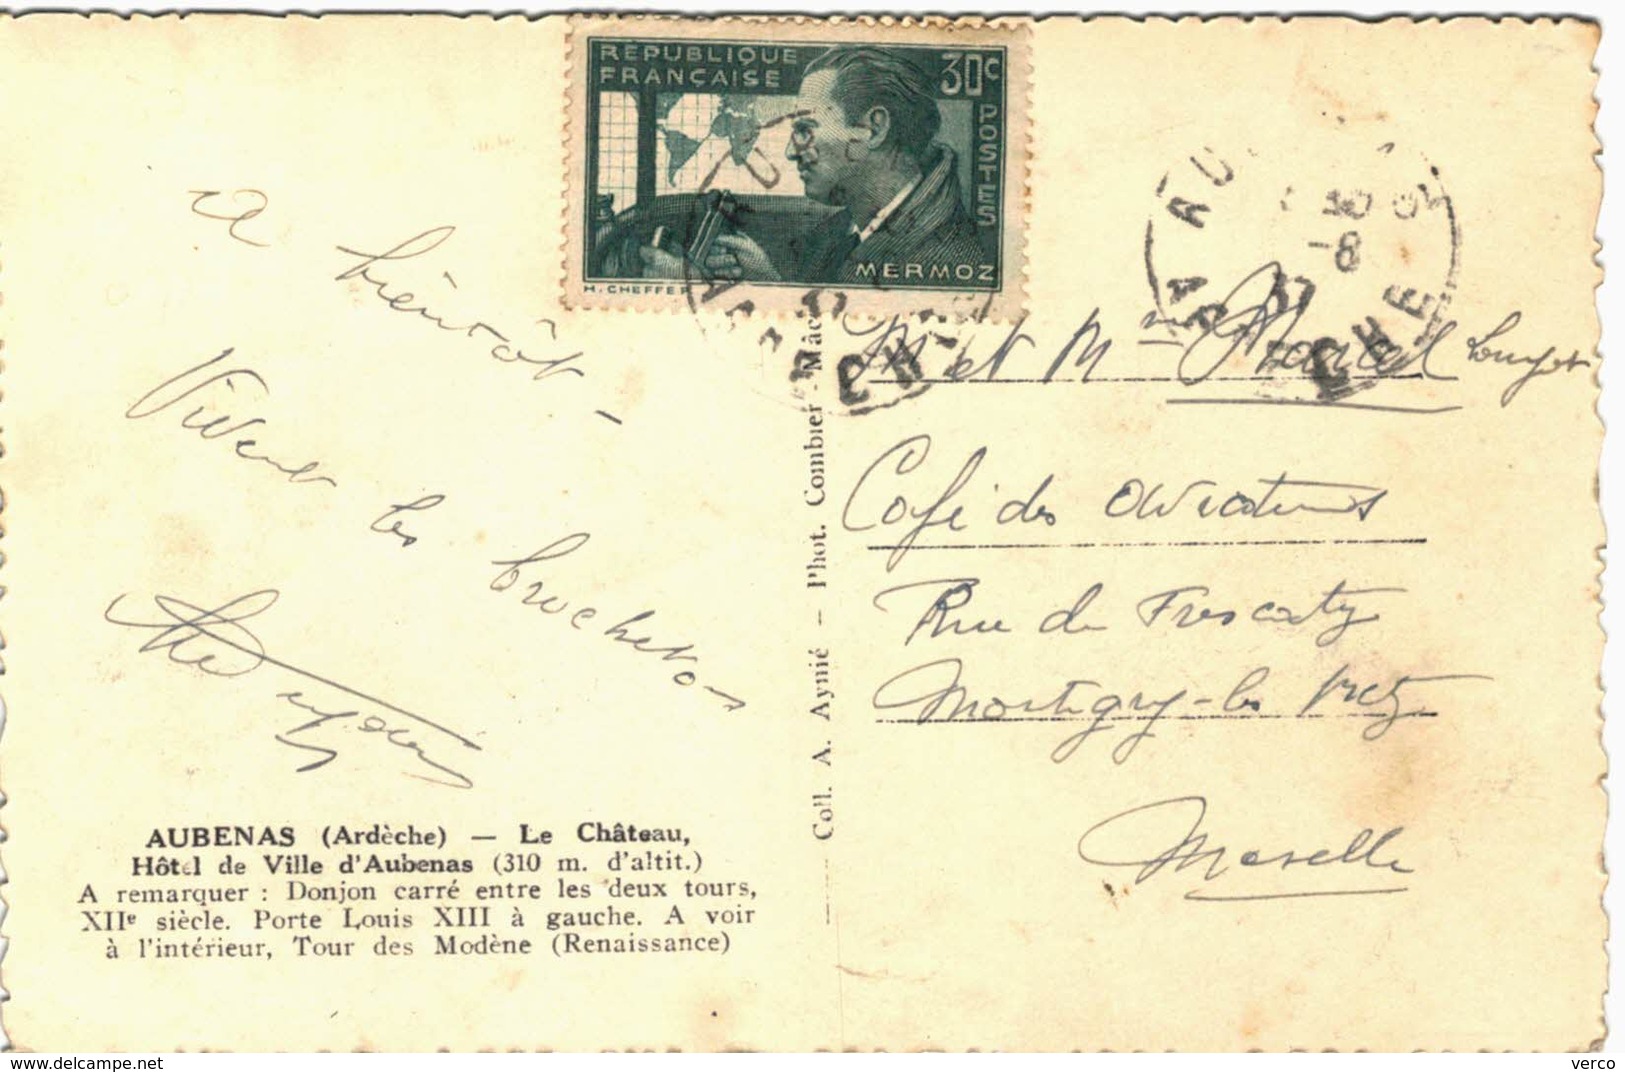 A bientôt -
Vivent les brochetons
RÉPUBLIQUE
FRANÇAISE
30c
POSTES
MERMOZ
H. CHEFFER
AUBENAS (Ardèche) — Le Château,
Hôtel de Ville d'Aubenas (310 m. d'altit.)
A remarquer : Donjon carré entre les deux tours,
XIIe siècle. Porte Louis XIII à gauche. A voir
à l'intérieur, Tour des Modène (Renaissance)
Coll. A. Aynié — Phot. Combier - Mâc
-8
M et Mme Marcel
Café des Aviateurs
Rue de Frescaty
Montigny-les Metz
Moselle
verco